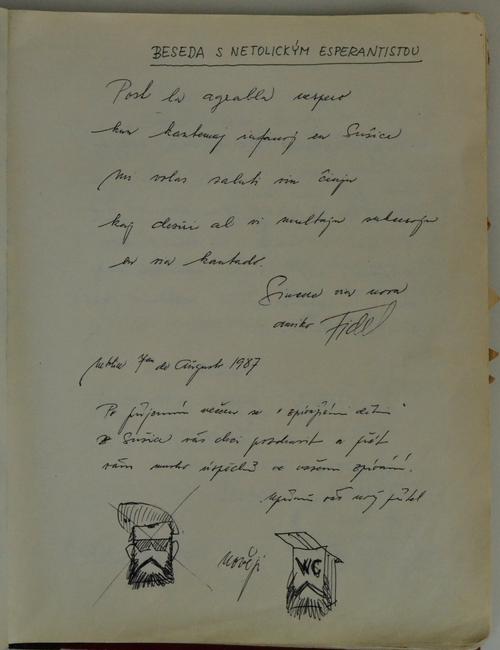 BESEDA S NETOLICKÝM ESPERANTISTOU
Post la agrabla vespero
kun kantemaj infanoj en Sušice
mi volas saluti vin ĉiujn
kaj deziri al vi multajn sukcesojn
en via kantado.
Sincere via nova
amiko Fidel
de Aŭgusto 1987
Po příjemném večeru se "zpívajícími dětmi"
z Sušice vás chci pozdravit a přát
vám mnoho úspěchů ve vašem zpívání.
Upřímně váš nový přítel
Nověji
WC